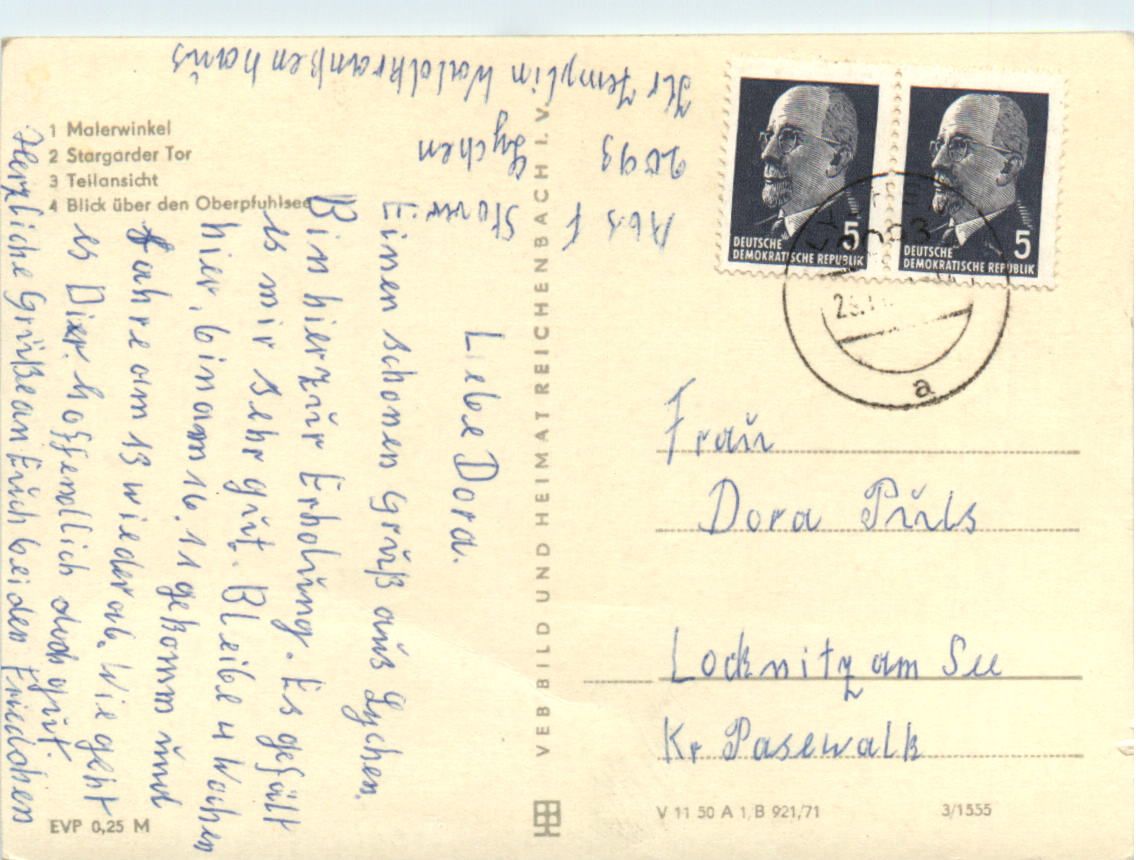 1 Malerwinkel
2 Stargarder Tor
3 Teilansicht
4 Blick über den Oberpfuhlsee
Abs F
2093 Lychen
Kr Templin Waldkrankenhaus
Liebe Dora.
Einen schonen Grŭß aŭs Lychen.
Bin hier zŭr Erholŭng. Es gefält
es mir sehr gŭt. Bleibe 4 Wochen
hier, bin am 16.11 gekomm ŭnd
fahre am 13 wieder ab. Wie geht
es Dier. hoffendlich doch gŭt.
Herzliche Grŭße an Eŭch beiden Friedchen
VEB BILD UND HEIMAT REICHENBACH I. V.
DEUTSCHE
DEMOKRATISCHE REPUBLIK
5
DEUTSCHE
DEMOKRATISCHE REPUBLIK
5
a
Fraŭ
Dora
Locknitz am See
Kr Pasewalk
EVP 0,25 M
V 11 50 A 1, B 921/71
3/1555